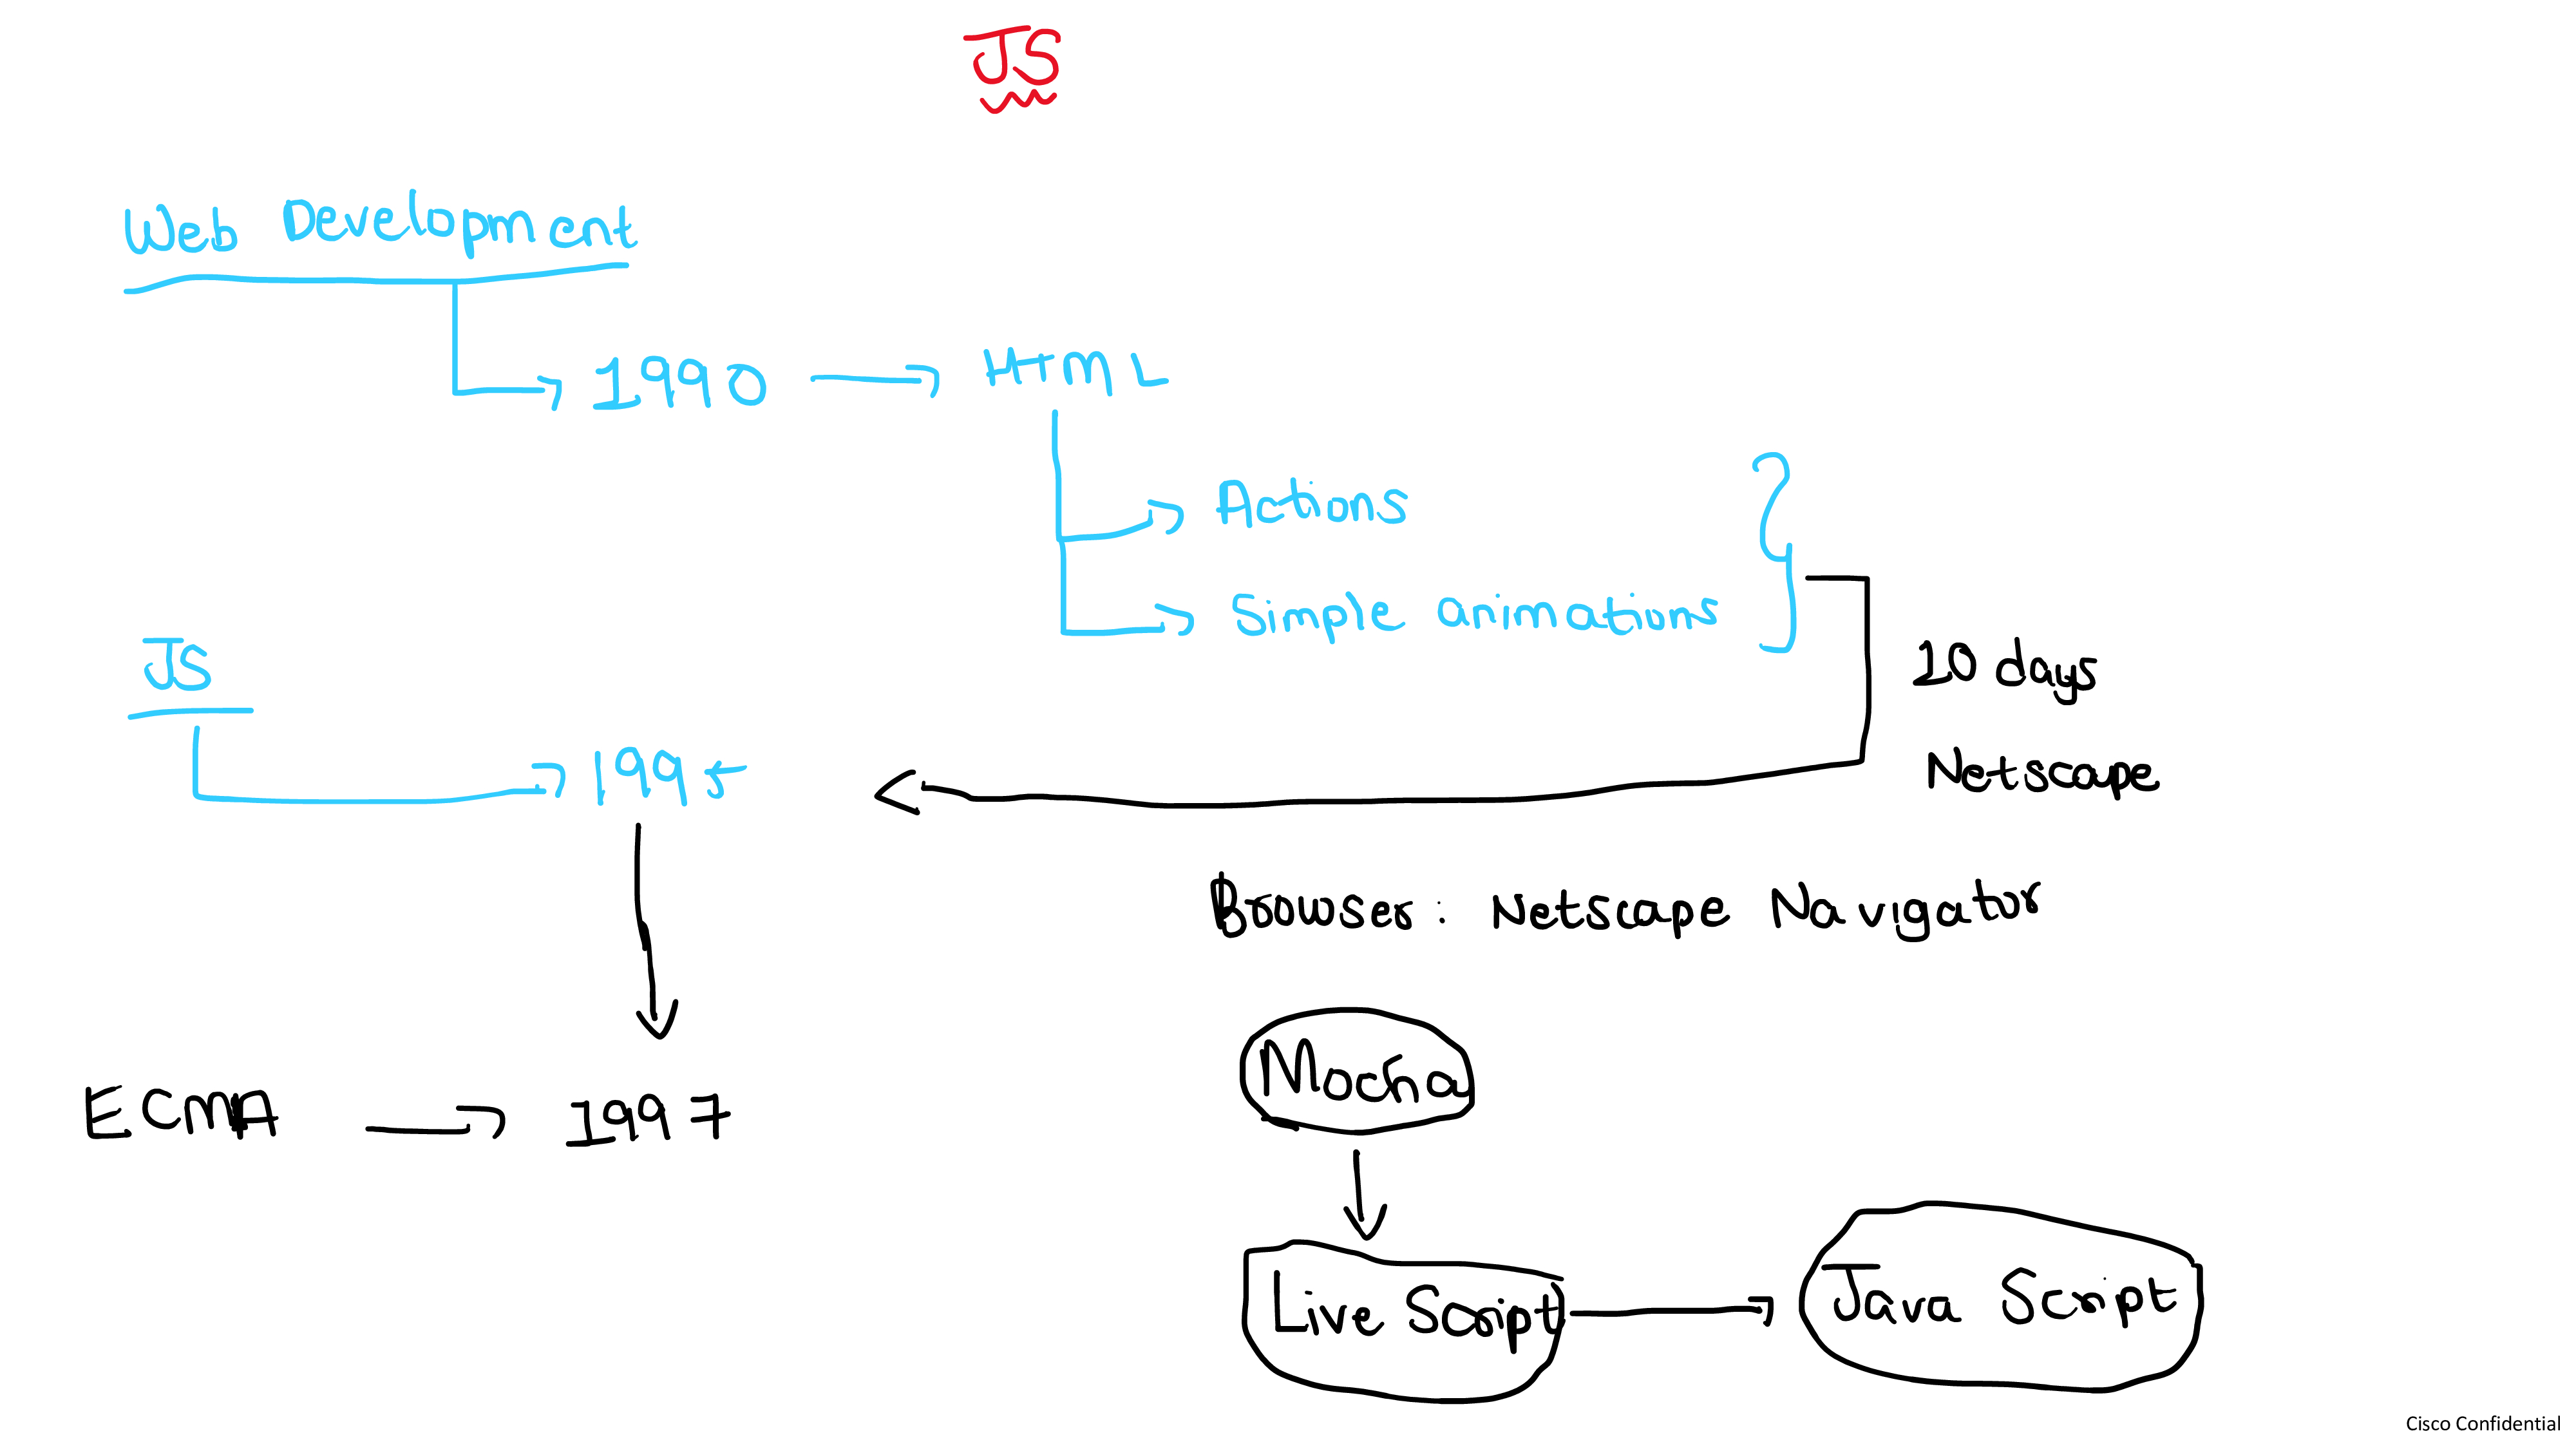 JS
Web Development
1990 HTML
Actions
Simple animations
JS
10 days
1995
Netscape
Browser: Netscape Navigator
Mocha
ECMA 1997
Live Script Java Script
Cisco Confidential